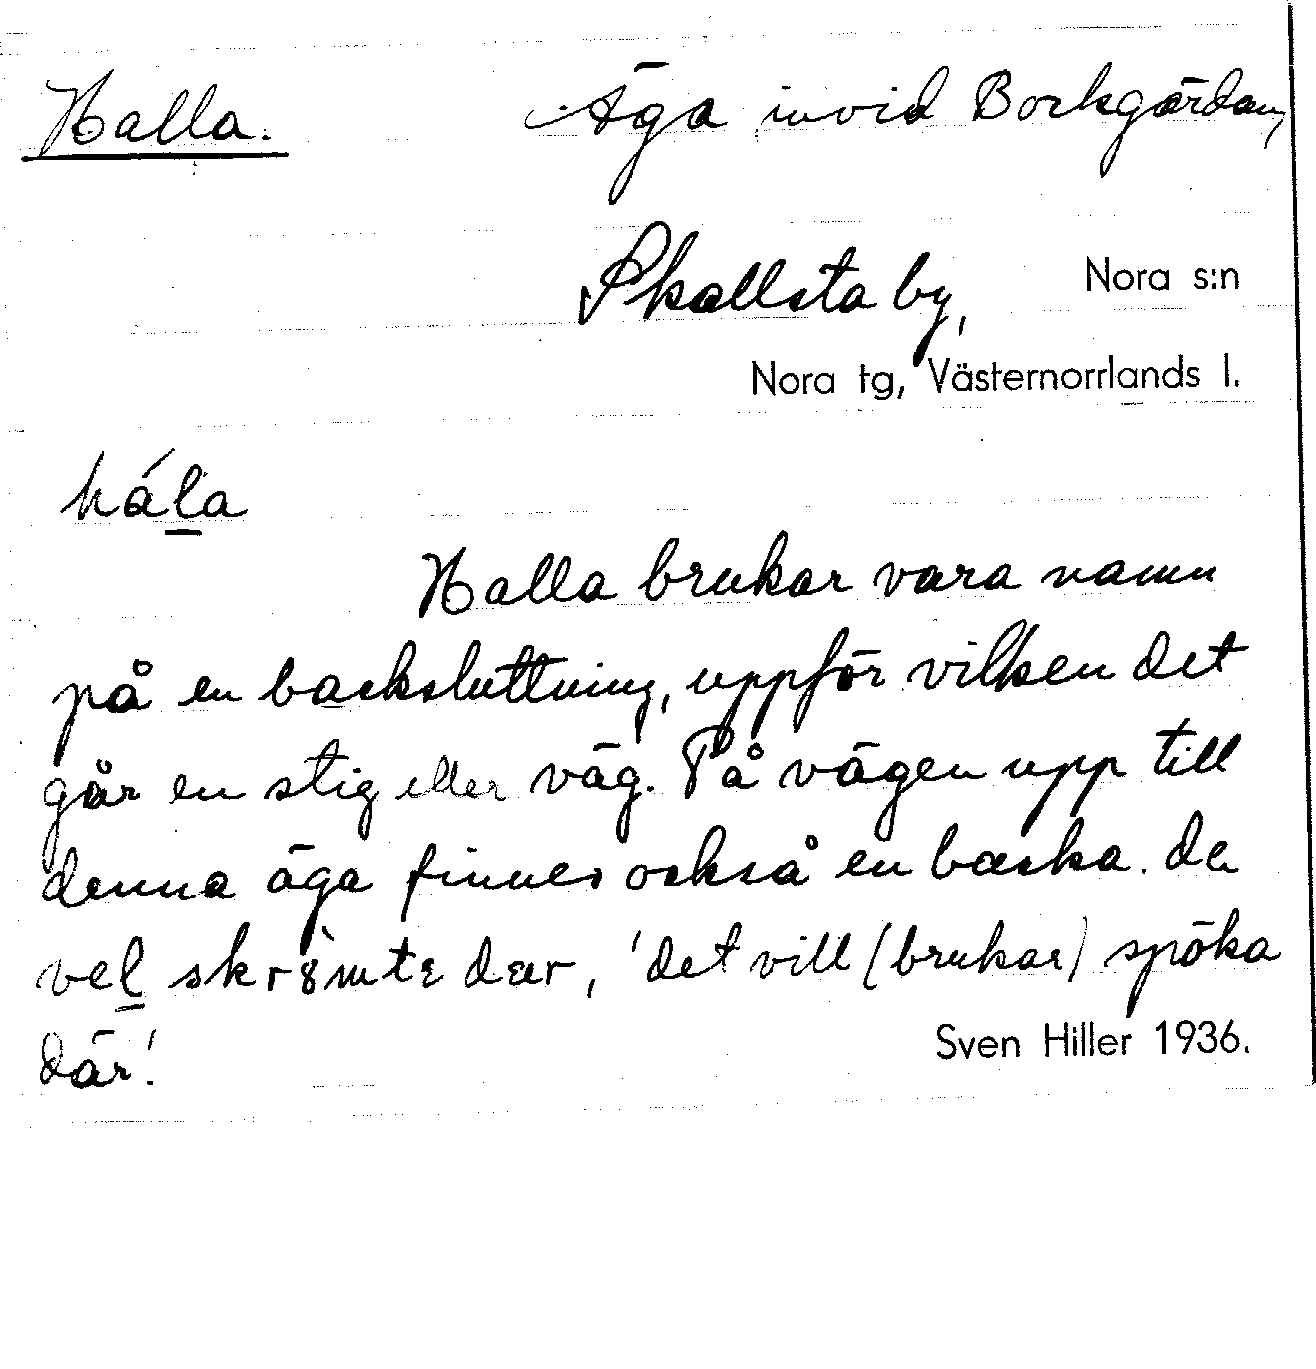 Halla.
Äga invid Bockgärdan,
Skallsta by,
Nora s:n
Nora tg, Västernorrlands l.
háḻa
Halla brukar vara namn
på en backsluttning, uppför vilken det
går en stig eller väg. På vägen upp till
denna äga finnes också en backa. de
veḻ skrömtε dær, 'det vill (brukar) spöka
där!'
Sven Hiller 1936.